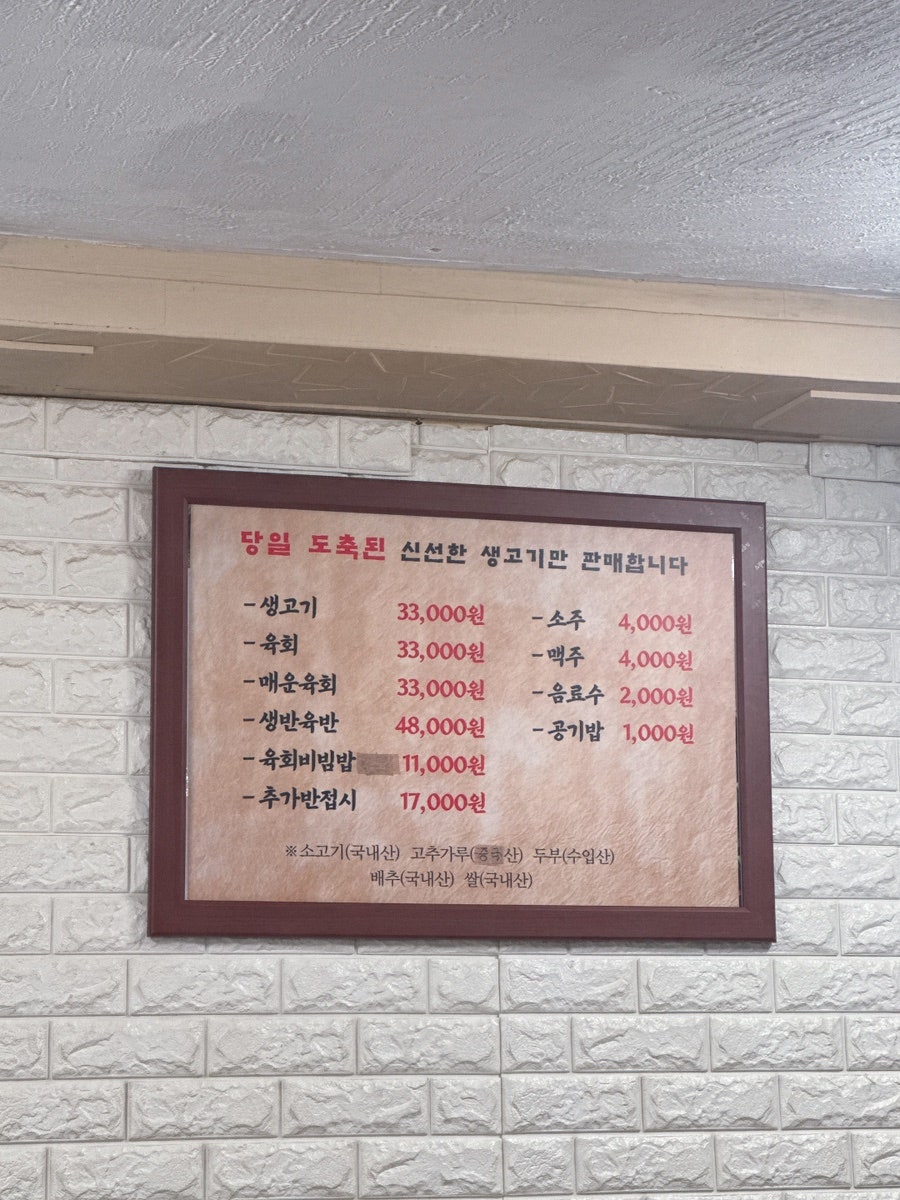 당일 도축된 신선한 생고기만 판매합니다
- 생고기 33,000원
- 육회 33,000원
- 매운육회 33,000원
- 생반육반 48,000원
- 육회비빔밥 11,000원
- 추가반접시 17,000원
- 소주 4,000원
- 맥주 4,000원
- 음료수 2,000원
- 공기밥 1,000원
※소고기(국내산) 고추가루(중국산) 두부(수입산)
배추(국내산) 쌀(국내산)